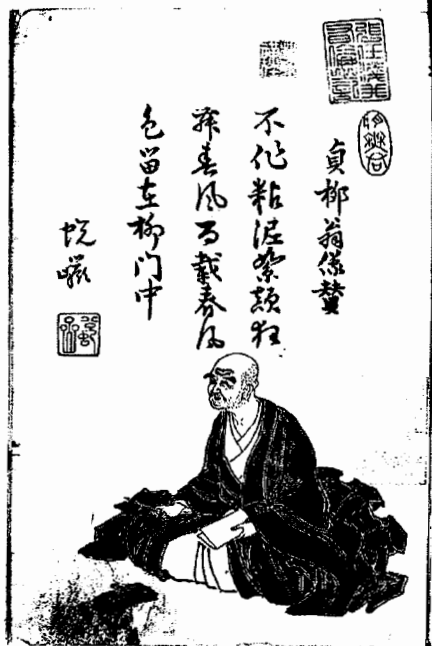 貞柳翁像贊
不作粘泥絮顛狂
舞春風百載春風
色留在柳門中
蛻巖